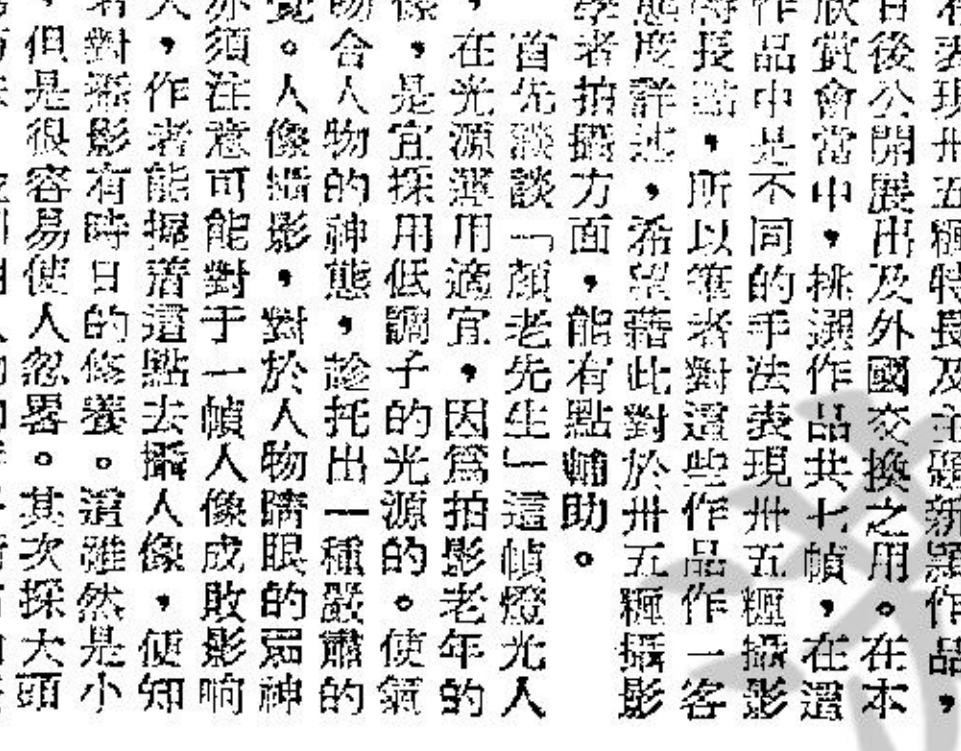 表現卅五糎特長及主題新穎作品，
日後公開展出及外國交換之用。在本
欣賞會當中，挑選作品共七幀，在這
作品中是不同的手法表現卅五糎攝影
特長點，所以筆者對這些作品作一客
態度詳述，希望藉此對於卅五糎攝影
學者拍攝方面，能有點輔助。
首先談談「顏老先生」這幀燈光人
，在光源選用適宜，因爲拍影老年的
像，是宜採用低調子的光源的。使氣
吻合人物的神態，診托出一種嚴肅的
覺。人像攝影，對於人物睛眼的眉神
亦須注意可能對于一幀人像成敗影响
大，作者能握着這點去攝人像，便知
對攝影有時日的修養。這雖然是小
，但是很容易使人忽畧。其次採大頭